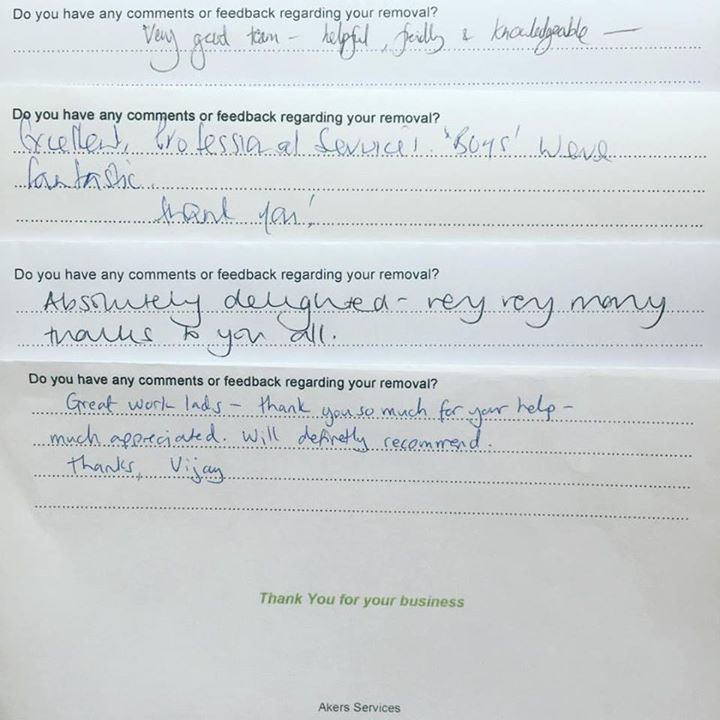 Do you have any comments or feedback regarding your removal?
Very good team - helpful, friendly & knowledgeable -
Do you have any comments or feedback regarding your removal?
Excellent, Professional Service! 'Boys' were
fantastic.
thank you!
Do you have any comments or feedback regarding your removal?
Absolutely delighted - very very many
thanks to you all.
Do you have any comments or feedback regarding your removal?
Great work lads - thank you so much for your help -
much appreciated. Will definetly recommend.
Thanks, Vijay
Thank You for your business
Akers Services